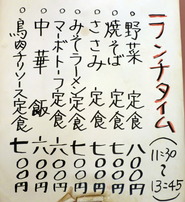 ランチタイム
(11:30〜13:45)
○野菜 定食 八〇〇円
○焼そば 定食 七〇〇円
○ささみ 定食 七〇〇円
○みそラーメン定食 七〇〇円
○マーボトーフ定食 六〇〇円
○中華飯 六〇〇円
○鳥肉チリソース定食 七〇〇円